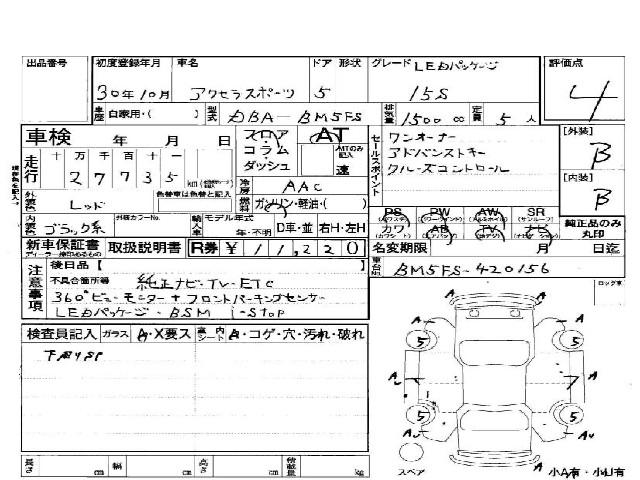 出品番号
初度登録年月 車名 ドア 形状 グレード LEDパッケージ 評価点
30年10月 アクセラスポーツ 5 15S 4
車歴 自家用・( ) 型式 DBA-BM5FS 排気量 1500 cc 定員 5 人
車検 年 月 日 フロア・コラム・ダッシュ AT MTのみ記入 速
走行 十 万 千 百 十 一
2 7 7 3 5 km
冷房 AAC
セールスポイント
ワンオーナー
アドバンストキー
クルーズコントロール
[外装] B
[内装] B
外装色 レッド 色替車は色替と記入 燃料 ガソリン・軽油・( )
PS PW AW SR
カワ AB TV ナビ
純正品のみ丸印
内装色 ブラック系 外装カラーNo. 輸入車 モデル年式 年・不明 D車・並 右H・左H
新車保証書 取扱説明書 R券 ¥11,220 名変期限 月 日迄
ディーラー捺印あるもの
注意事項
後日品【 】
車台No. BM5FS-420156
不具合箇所等 純正ナビ・TV・ETC
360°ビューモニター+フロントパーキングセンサー
LEDパッケージ・BSM i-STOP
ロッグ車
検査員記入 ガラス A・X要ス 車内シート A・コゲ・穴・汚れ・破れ
下廻りSP
A A
5 5
A A
5 5
長さ cm 幅 cm 高さ cm 積載量 kg
スペア
小A有・小U有